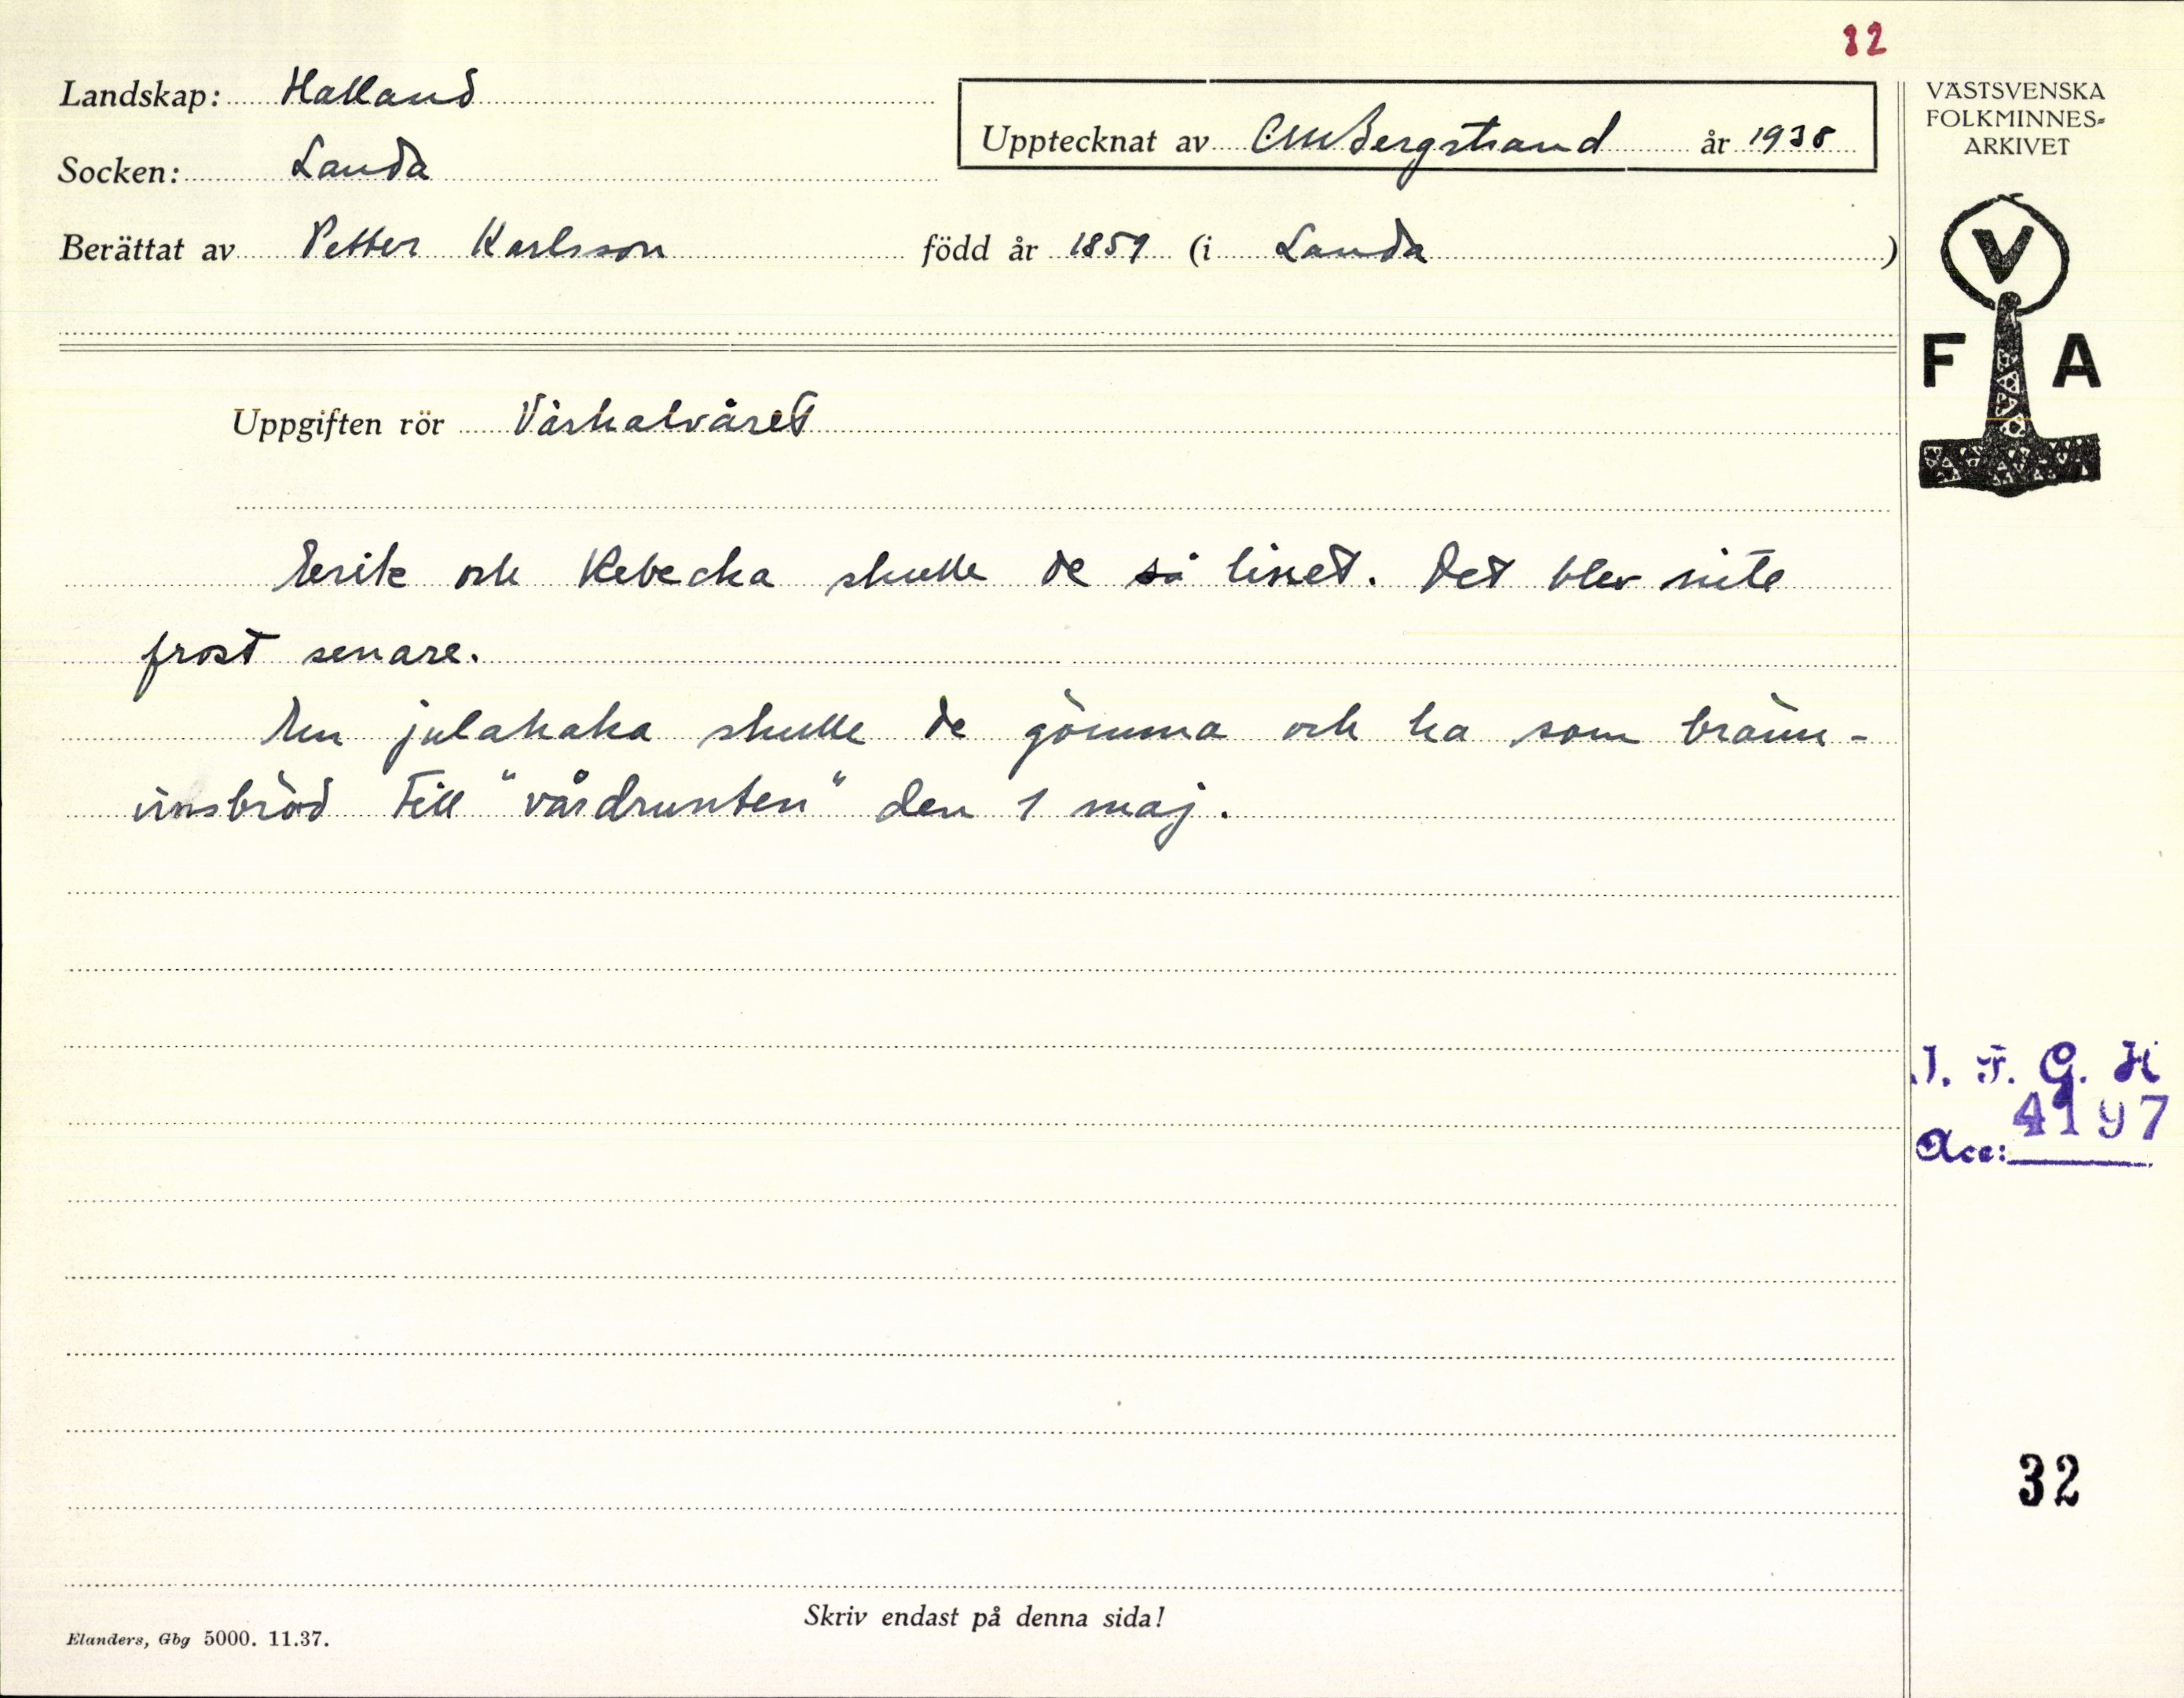 32
Landskap: Halland
Upptecknat av CMBergstrand år 1938
VÄSTSVENSKA
FOLKMINNES-
ARKIVET
Socken: Landa
Berättat av Petter Karlsson född år 1859 (i Landa)
V
F A
Uppgiften rör Vårhalvåret
Erik och Rebecka skulle de så linet. Det blev inte
frost senare.
En julakaka skulle de gömma och ha som bränn-
vinsbröd till "vårdrunten" den 1 maj.
I. F. G. H
4197
Acc:
32
Skriv endast på denna sida!
Elanders, Gbg 5000. 11.37.